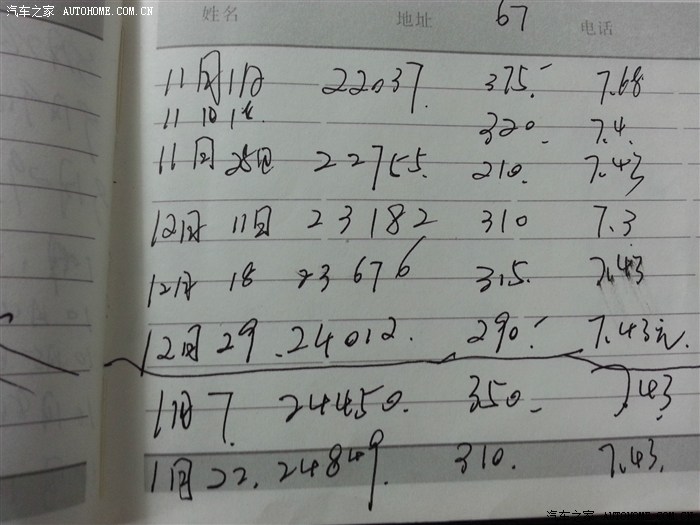 汽车之家 AUTOHOME.COM.CN
姓名 地址 67 电话
11月1日 22037. 375. 7.68
11月 320. 7.4.
11月25日 22755. 210. 7.43
12月11日 23182 310 7.3
12月18 23676 315. 7.43
12月29. 24012. 290. 7.43元.
1月7. 24450. 350. 7.43
1月22. 24849. 310. 7.43.
汽车之家 AUTOHOME.COM.CN